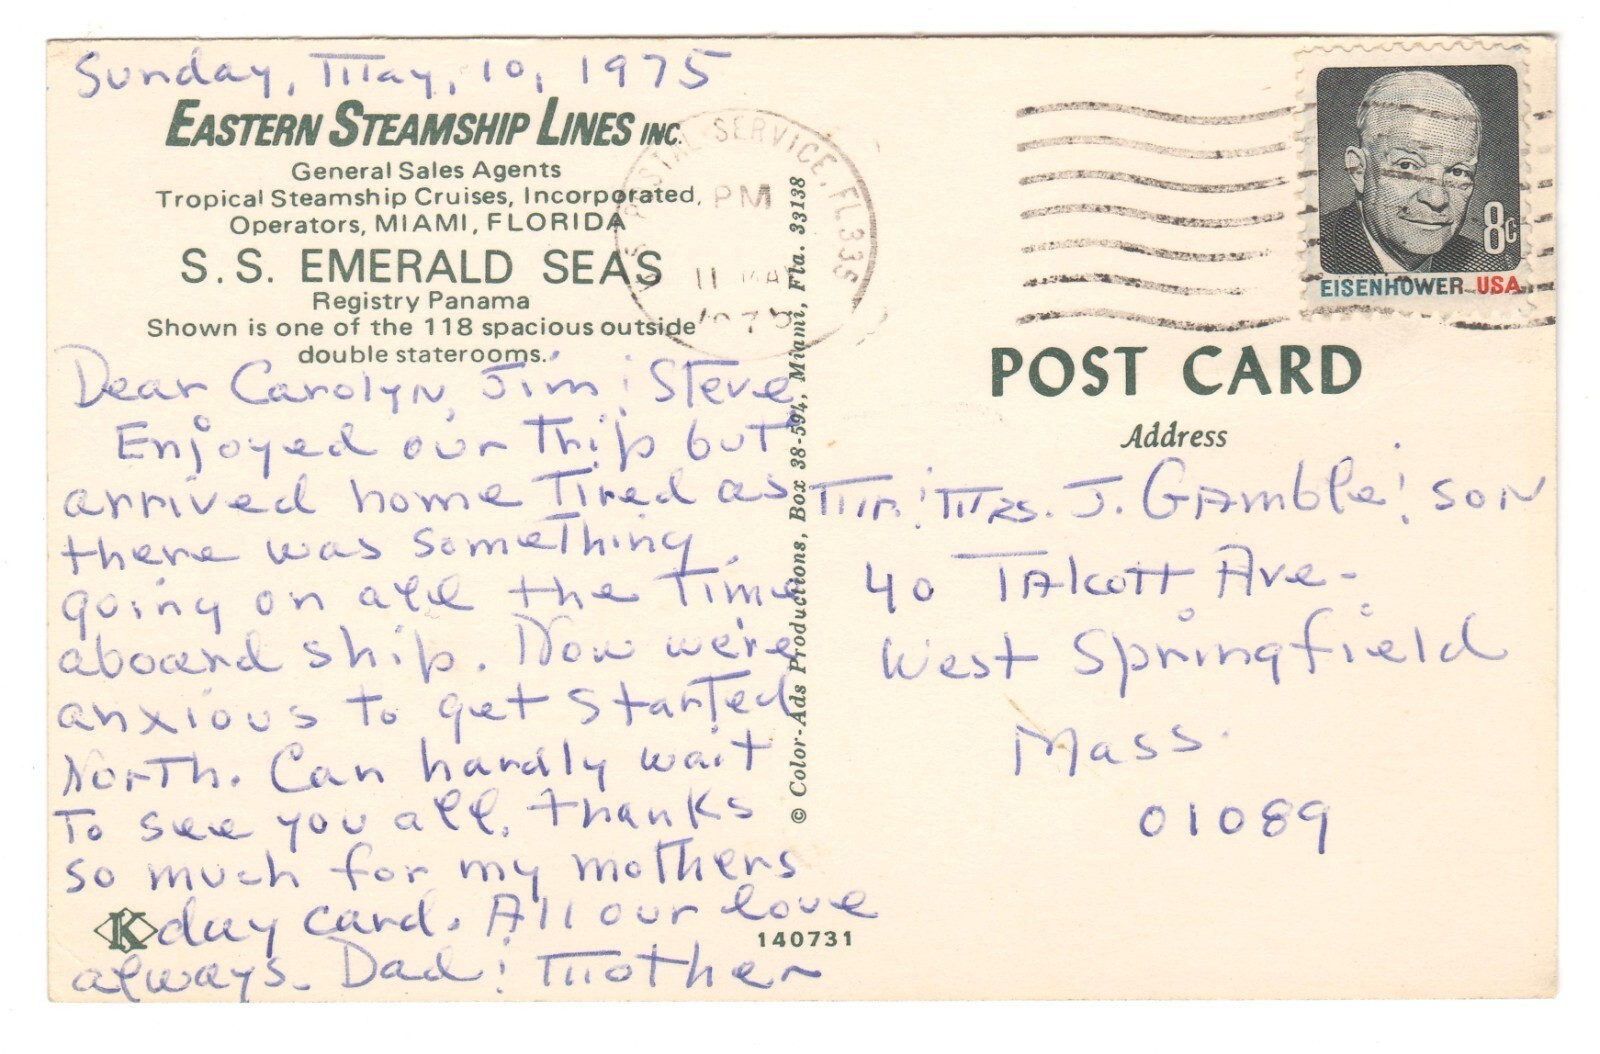 Sunday, May, 10, 1975
EASTERN STEAMSHIP LINES INC.
General Sales Agents
Tropical Steamship Cruises, Incorporated,
Operators, MIAMI, FLORIDA
S.S. EMERALD SEAS
Registry Panama
Shown is one of the 118 spacious outside
double staterooms.
Dear Carolyn, Jim & Steve,
Enjoyed our trip but
arrived home tired as
there was something
going on all the time
aboard ship. Now we're
anxious to get started
North. Can hardly wait
to see you all. thanks
so much for my mothers
day card. All our love
always. Dad & Mother
K
140731
© Color-Ads Productions, Box 38-594, Miami, Fla. 33138
POSTAL SERVICE, FL 335
PM
11 MAY
1975
8c
EISENHOWER USA
POST CARD
Address
Mr & Mrs. J. Gamble & son
40 Talcott Ave-
West Springfield
Mass.
01089